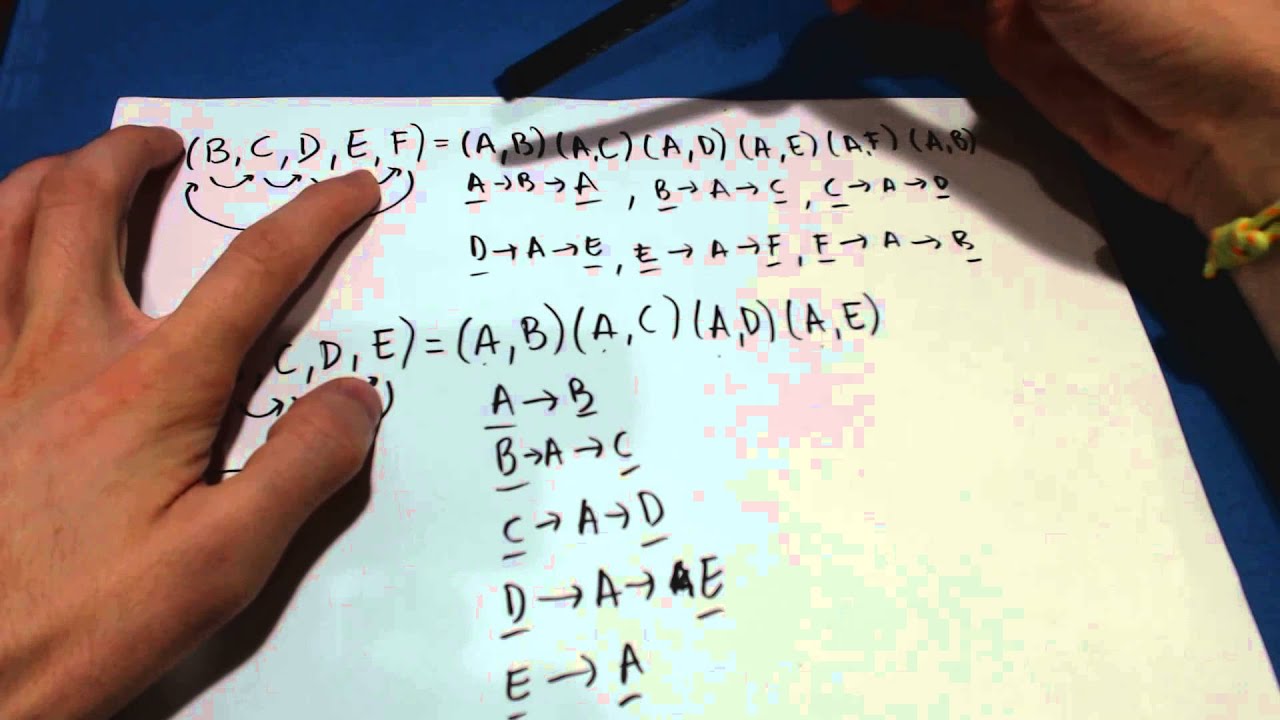 (B, C, D, E, F) = (A, B) (A, C) (A, D) (A, E) (A, F) (A, B)
A → B → A , B → A → C , C → A → D
D → A → E , E → A → F , F → A → B
, C, D, E) = (A, B) (A, C) (A, D) (A, E)
A → B
B → A → C
C → A → D
D → A → E
E → A